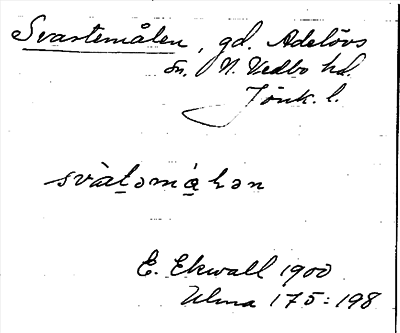 Svartemålen, gd. Adelövs
sn, N. Vedbo hd.
Jönk. l.
svàt̠əmá̠lən
E. Ekwall 1900
Ulma 175:198